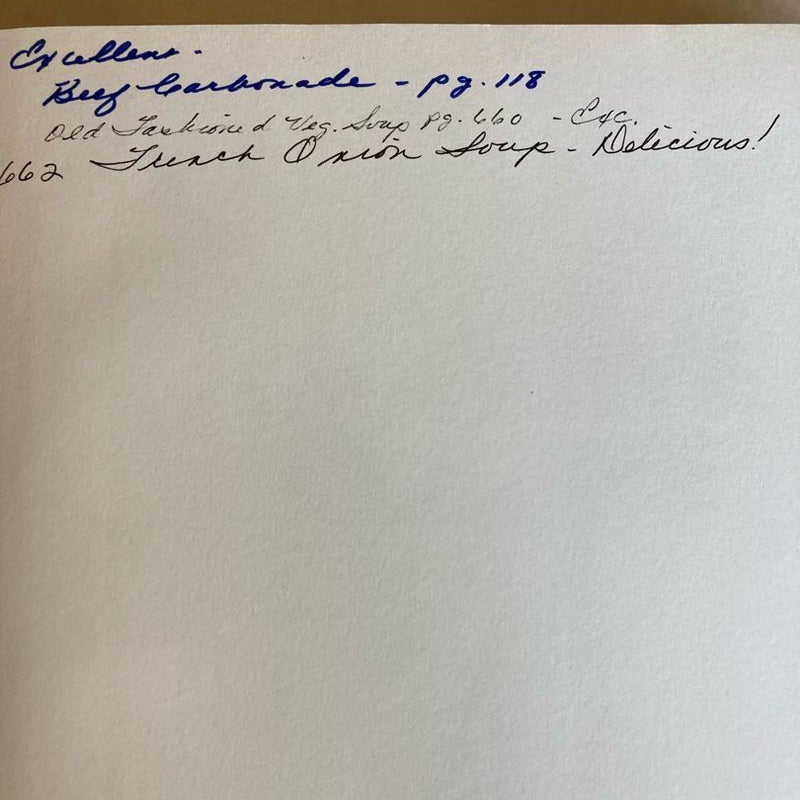 Excellent.
Beef Carbonade - pg. 118
Old Fashioned Veg. Soup pg. 660 - Exc.
662 French Onion Soup - Delicious!